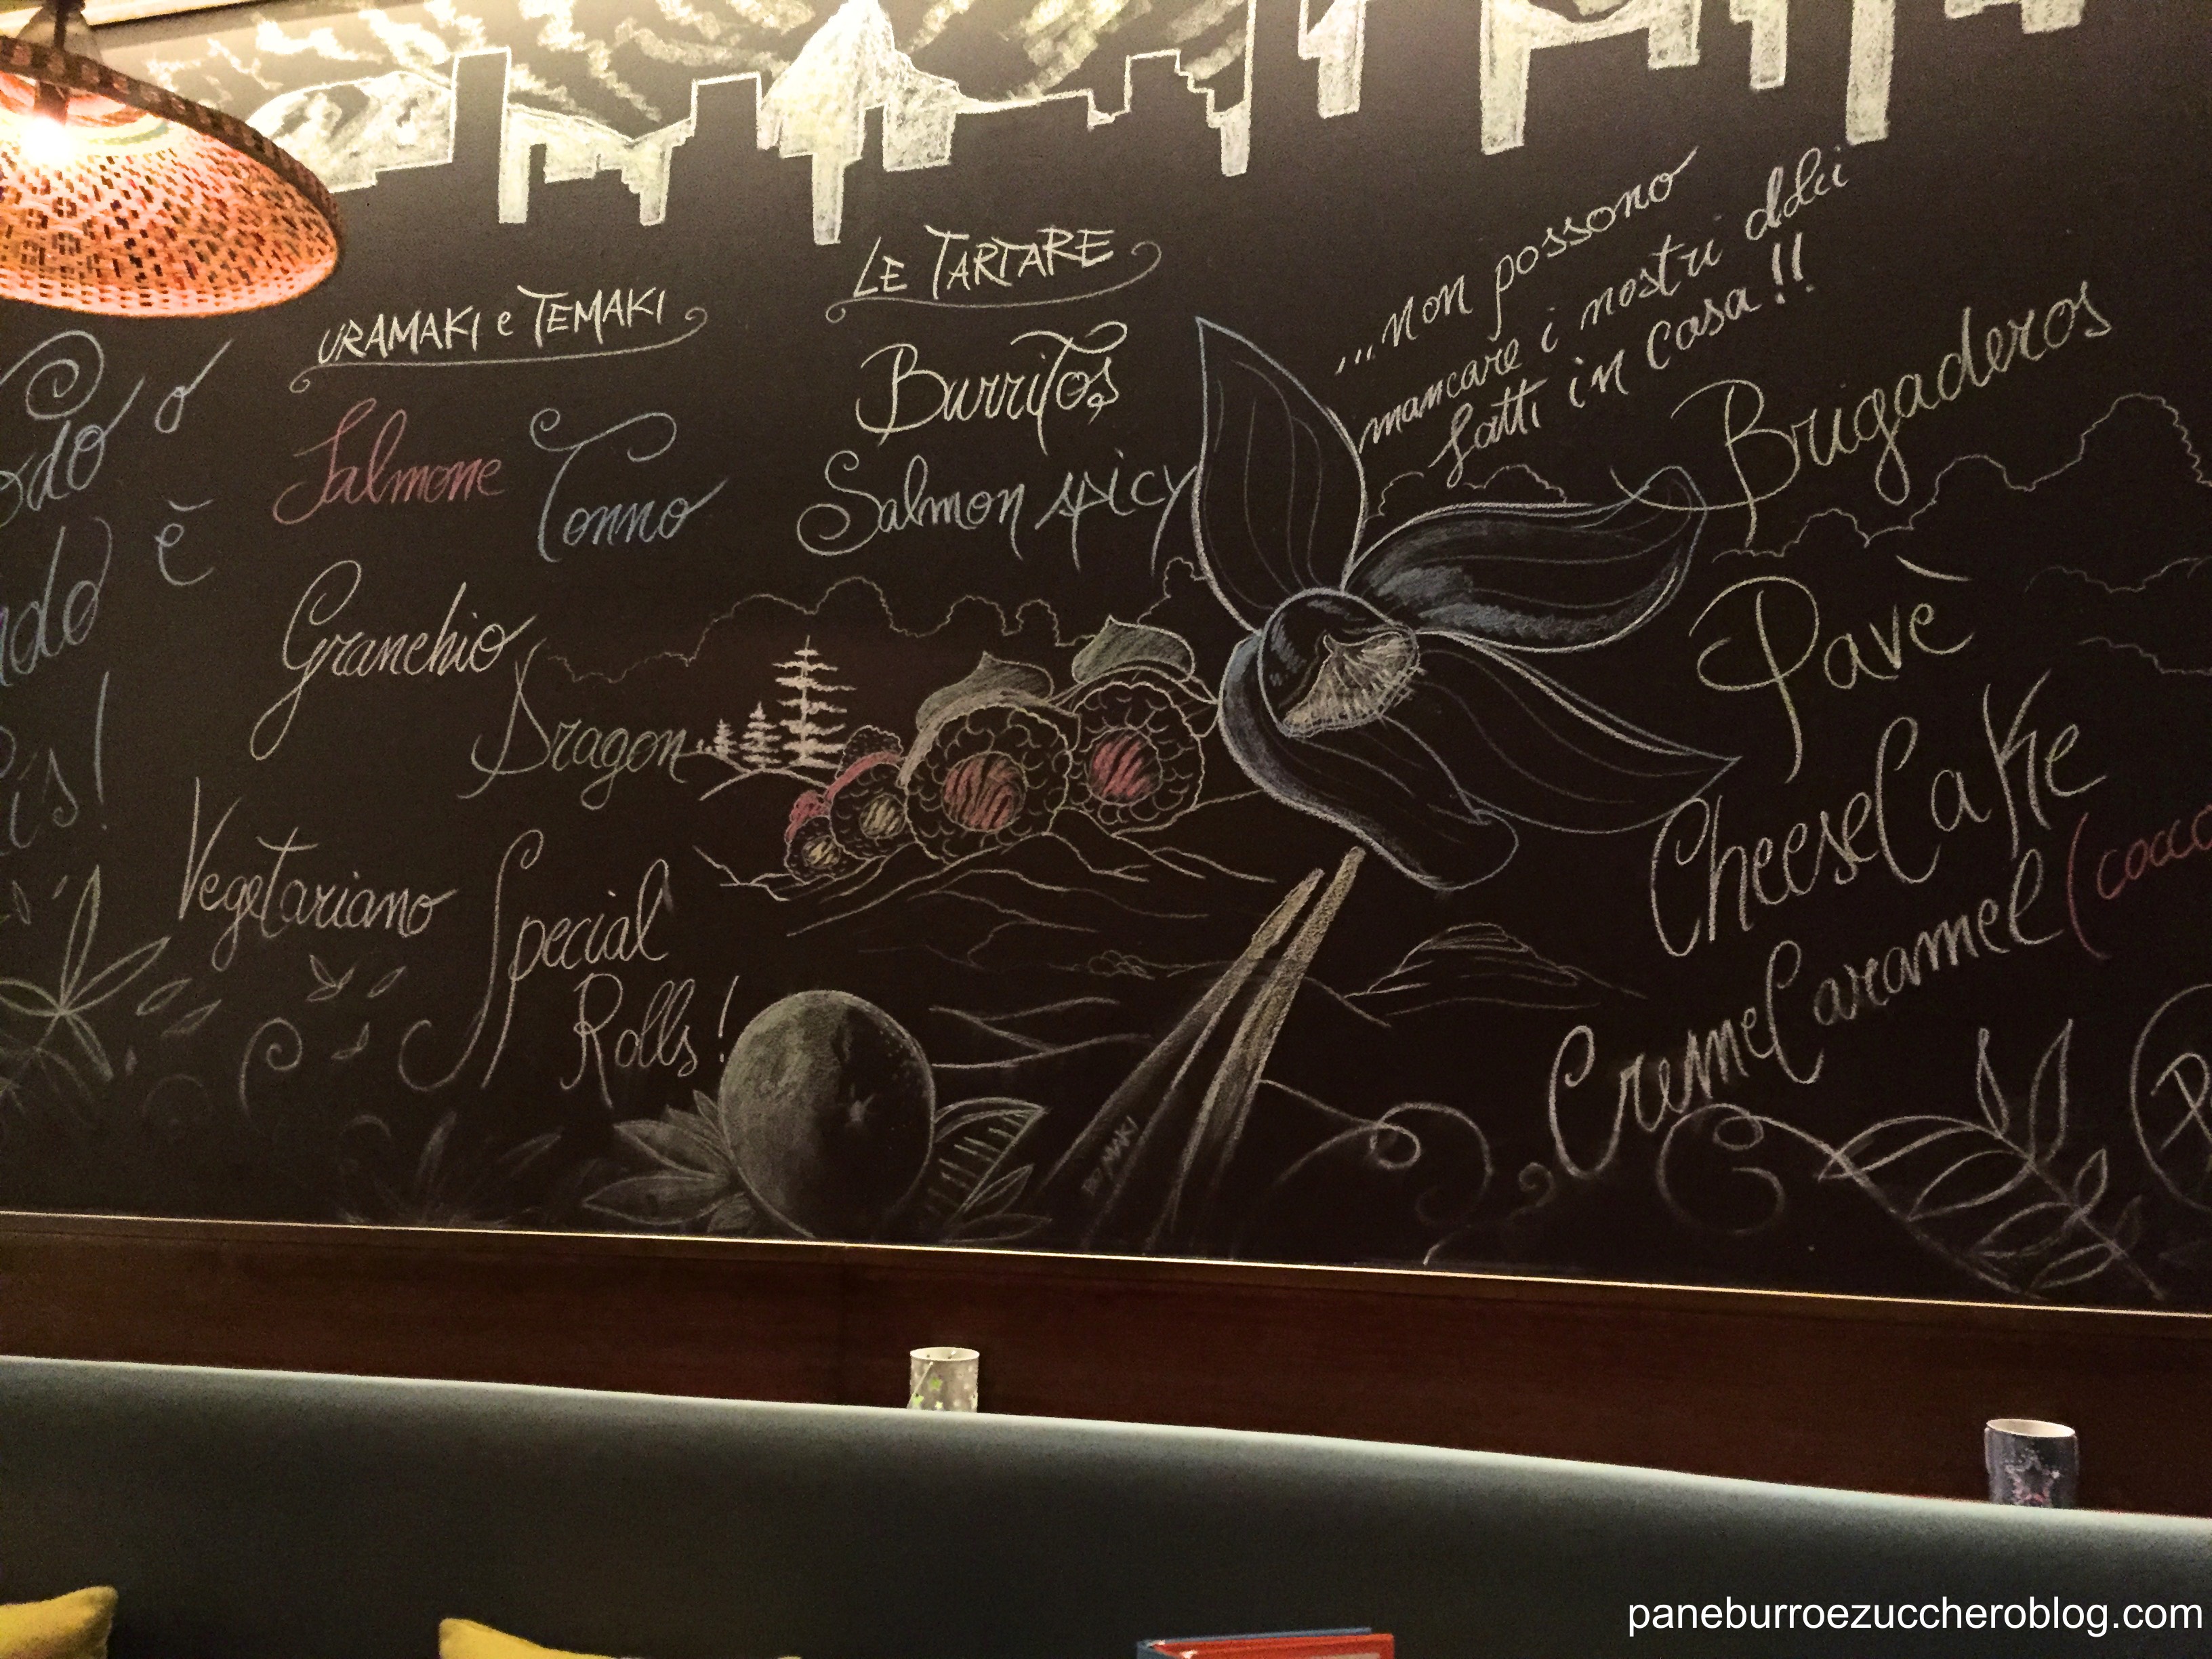 URAMAKI e TEMAKI
Salmone
Tonno
Granchio
Dragon
Vegetariano
Special
Rolls!
LE TARTARE
Burritos
Salmon spicy
...non possono
mancare i nostri
fatti in casa!!
Brigaderos
Pavè
CheeseCake
CremeCaramel (cocco
è
MAKI
paneburroezuccheroblog.com